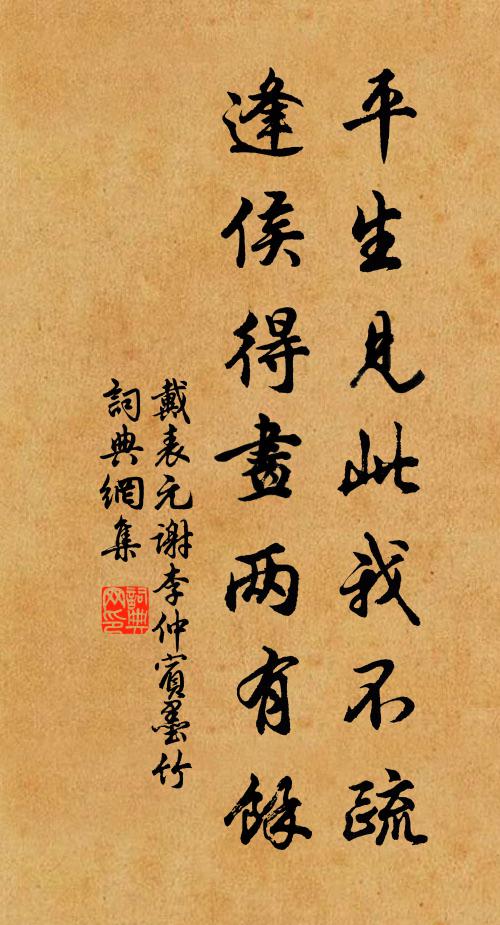 平生見此我不疏
逢侯得畫两有餘
戴表元谢李仲賓墨竹
詞典網集
詞典网印